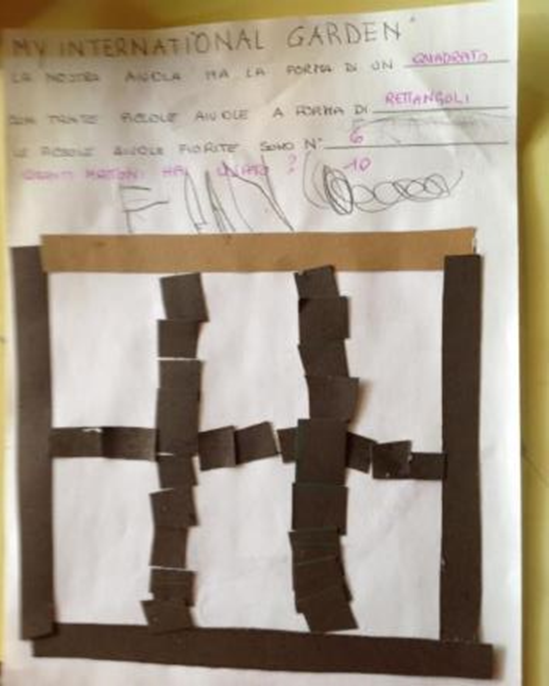 MY INTERNATIONAL GARDEN
LA NOSTRA AIUOLA HA LA FORMA DI UN QUADRATO
TANTE PICCOLE AIUOLE A FORMA DI RETTANGOLI
LE PICCOLE AIUOLE FIORITE SONO N° 6
QUANTI MATTONI HAI USATO? 10